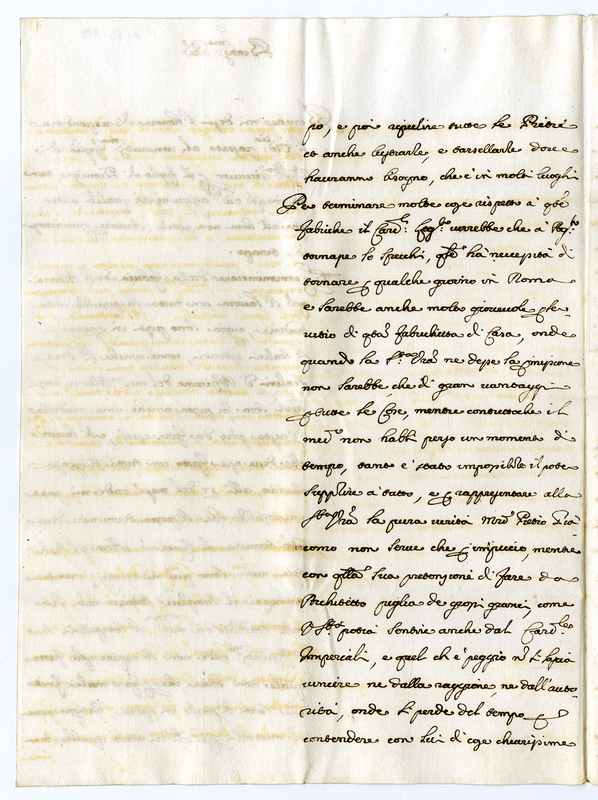 po, e poi ripulire tutte le Pietre
et anche lustrarle, e tassellarle dove
hauranno bisogno, che è in molti luoghi
Per terminare molte cose rispetto a q.te
fabriche il Card.l Leg.to vorrebbe che a Seg.to
tornasse lo Specchi, q.le hà necessità di
tornare p qualche giorno in Roma
e sarebbe anche molto giovevole p ser-
uitio di q.ta fabrichetta di Casa, onde
quando la S.tà V.ra ne desse la p.missione
non sarebbe che di gran vantaggio
p tutte le Cose, mentre contuttoche il
med.o non habbi perso un momento di
tempo, tanto è stato impossibile il poter
supplire a tutto, e p rappresentare alla
S.tà V.ra la pura verità M.ro Pietro Gia-
como non serve che p impiccio, mentre
con q.lla sua pretensione di fare da
Architetto piglia de grossi granci, come
V. S.tà potrà sentire anche dal Card.le
Imperiali, e quel ch'è peggio n si lascia
vincere ne dalla raggione, ne dall'auto-
rità, onde si perde del tempo p
contendere con lui di cose chiarissime